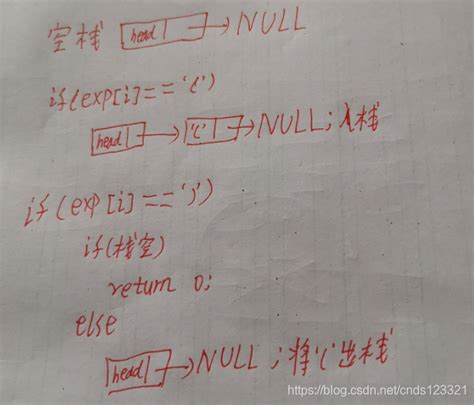 空栈 head → NULL
if(exp[i]=='(')
head → '(' → NULL;入栈
if(exp[i]==')')
if(栈空)
return 0;
else
head → NULL ;将'('出栈
https://blog.csdn.net/cnds123321